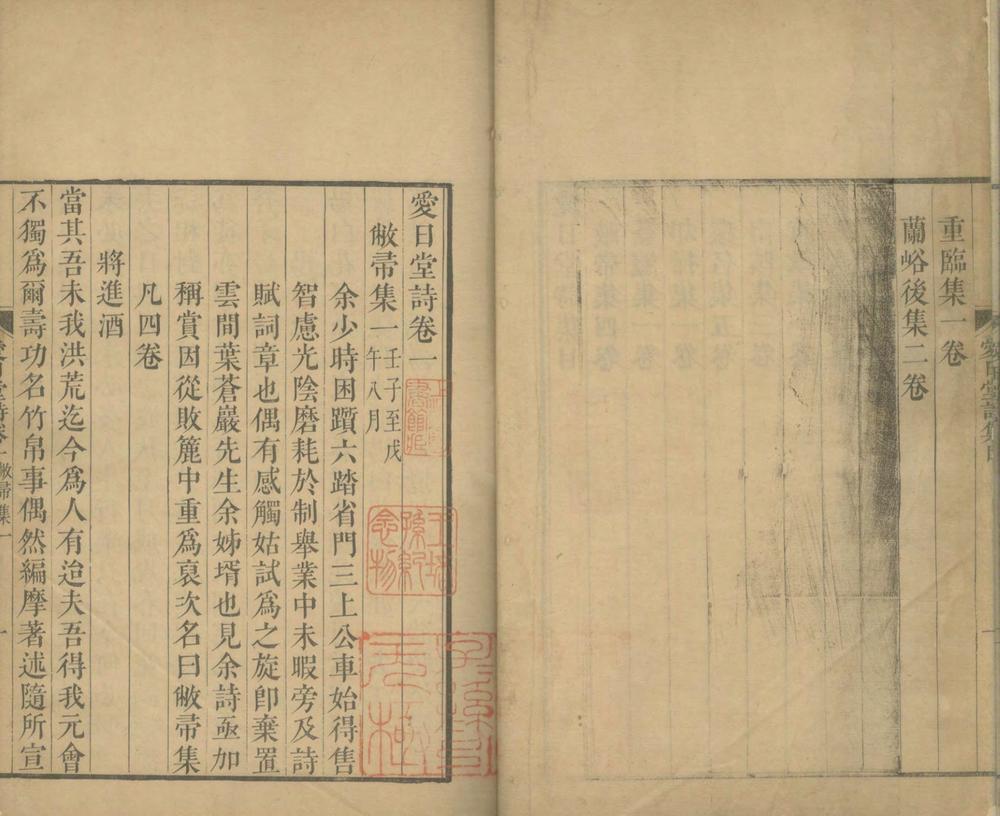 重臨集一卷
蘭峪後集二卷
愛日堂詩卷一
敝帚集一 壬子至戊午八月
余少時困躓六踏省門三上公車始得售
智慮光陰磨耗於制舉業中未暇旁及詩
賦詞章也偶有感觸姑試為之旋卽棄置
雲間葉蒼巖先生余姊壻也見余詩亟加
稱賞因從敗簏中重為裒次名曰敝帚集
凡四卷
將進酒
當其吾未我洪荒迄今為人有迨夫吾得我元會
不獨為爾壽功名竹帛事偶然編摩著述隨所宣